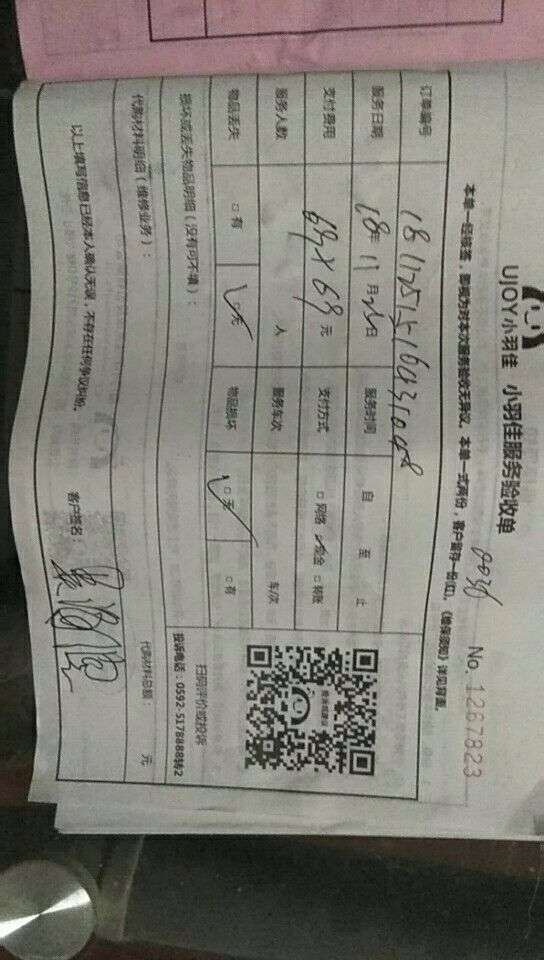 UJOY小羽佳 小羽佳服务验收单
No. 1267823
本单一经接签，即视为对本次服务验收无异议，本单一式两份，客户留存一份(红)，《维保须知》详见背面。
订单编号
服务日期 18年 11月 25日 服务时间 自 至 止
支付费用 69×69 元 支付方式 □网络 ☑现金 □转账
服务人数 人 服务车次 车/次
物品丢失 □有 ☑无 物品损坏 ☑无 □有
扫码评价或投诉
投诉电话：0592-5178888转2
损坏或丢失物品明细（没有可不填）：
代购材料明细（维修业务）： 代购材料总额 元
以上填写信息已经本人确认无误，不存在任何争议纠纷。
客户签名：